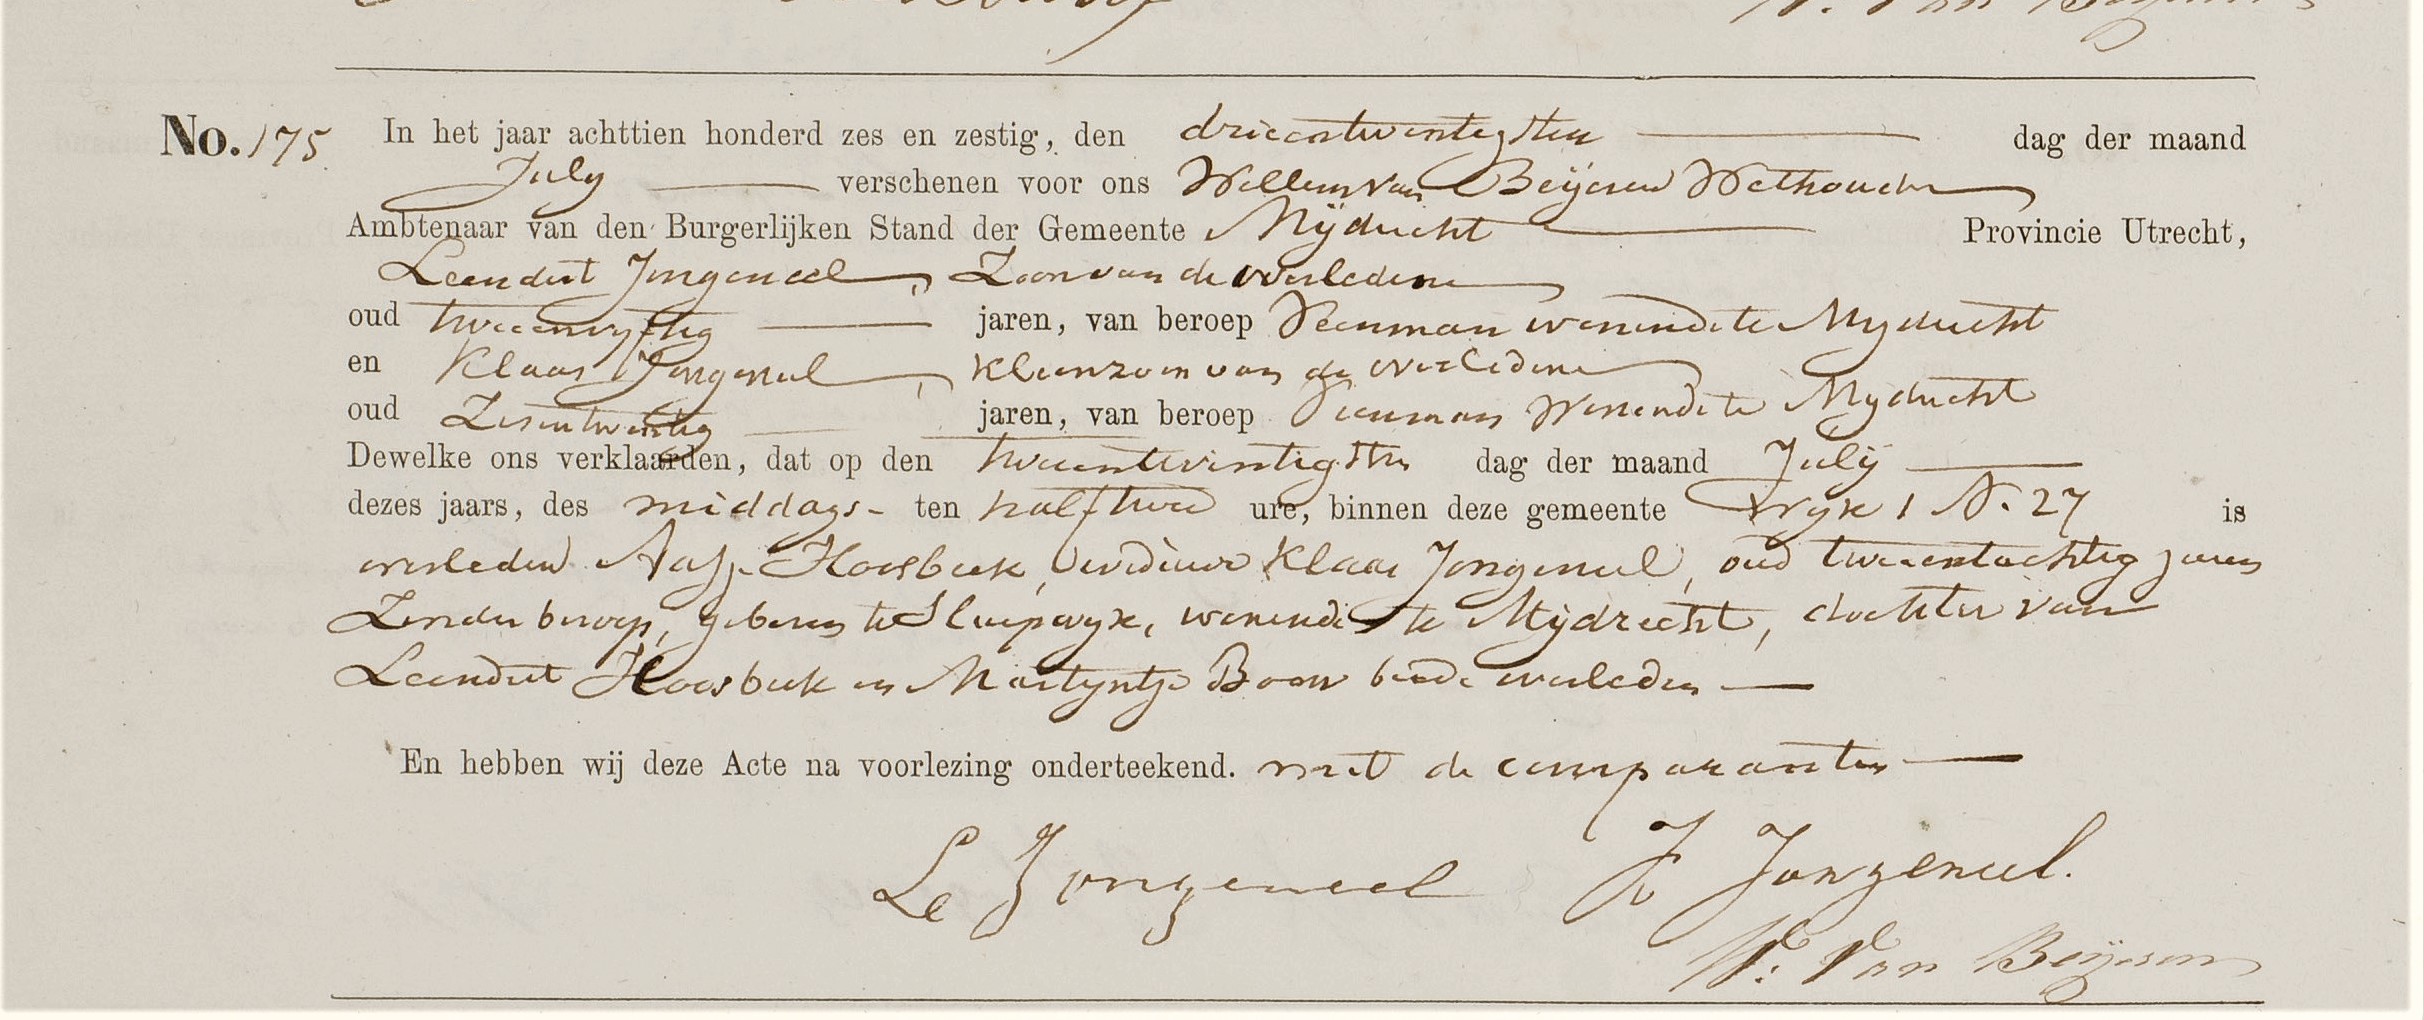 No. 175 In het jaar achttien honderd zes en zestig, den drieentwintigsten dag der maand
July verschenen voor ons Willem van Beijeren Wethouder
Ambtenaar van den Burgerlijken Stand der Gemeente Mijdrecht Provincie Utrecht,
Leendert Jongeneel, Zoon van de overledene
oud tweeenvyftig jaren, van beroep Veenman wonende te Mydrecht
en Klaas Jongeneel, Kleinzoon van de overledene
oud Zesentwintig jaren, van beroep Veenman Wonende te Mydrecht
Dewelke ons verklaarden, dat op den tweentwintigsten dag der maand Julij
dezes jaars, des middags - ten half twee ure, binnen deze gemeente Wyk 1 N. 27 is
overleden Aafje Hoosbeek, weduwe Klaas Jongeneel, oud tweeentachtig jaren
Zonder beroep, geboren te Sluipwyk, wonende te Mijdrecht, dochter van
Leendert Hoosbeek en Martyntje Boow beide overleden
En hebben wij deze Acte na voorlezing onderteekend. met de comparanten
Le Jongeneel K Jongeneel.
W. Van Beijeren